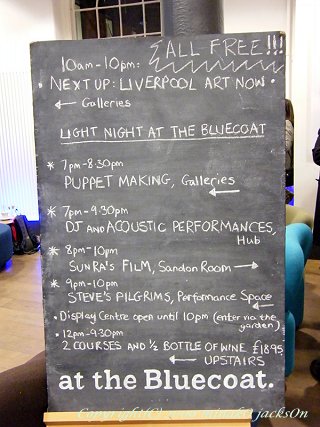 10am-10pm: ALL FREE!!!
• NEXT UP: LIVERPOOL ART NOW •
← Galleries
LIGHT NIGHT AT THE BLUECOAT
* 7pm-8:30pm
PUPPET MAKING, Galleries ←
* 7pm-9:30pm
DJ AND ACOUSTIC PERFORMANCES,
Hub
* 8pm-10pm
SUNRA'S FILM, Sandon Room →
* 9pm-10pm
STEVE'S PILGRIMS, Performance Space ←
• Display Centre open until 10pm (enter via the
garden)
• 12pm-9:30pm
2 COURSES AND ½ BOTTLE OF WINE £18.95
← UPSTAIRS
at the Bluecoat.